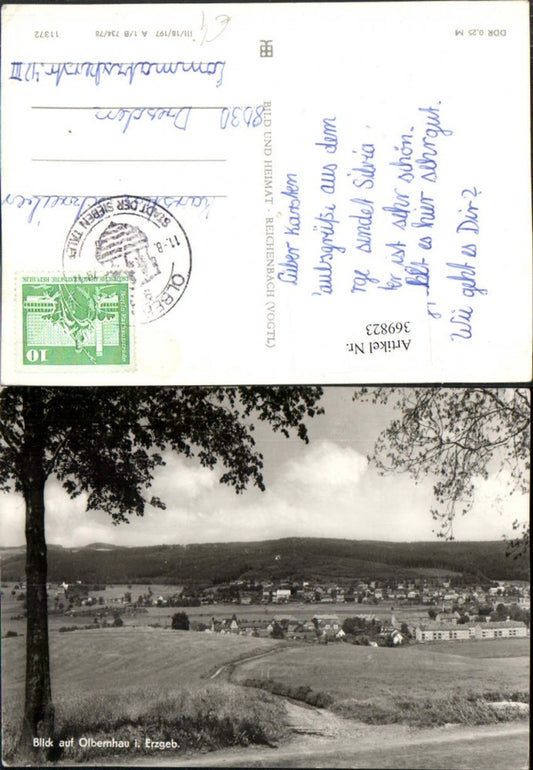 DDR 0,25 M
III/18/197 A 1/B 734/78
11372
BILD UND HEIMAT · REICHENBACH (VOGTL)
Lieber Karsten
aus dem
sendet Silvia
ist sehr schön.
es hier sehr gut.
Wie geht es Dir?
Artikel Nr.
369823
8030 Dresden
STADT DER SIEBEN TÄLER
11.-8.
OLBER
10
DEUTSCHE DEMOKRATISCHE REPUBLIK
Blick auf Olbernhau i. Erzgeb.